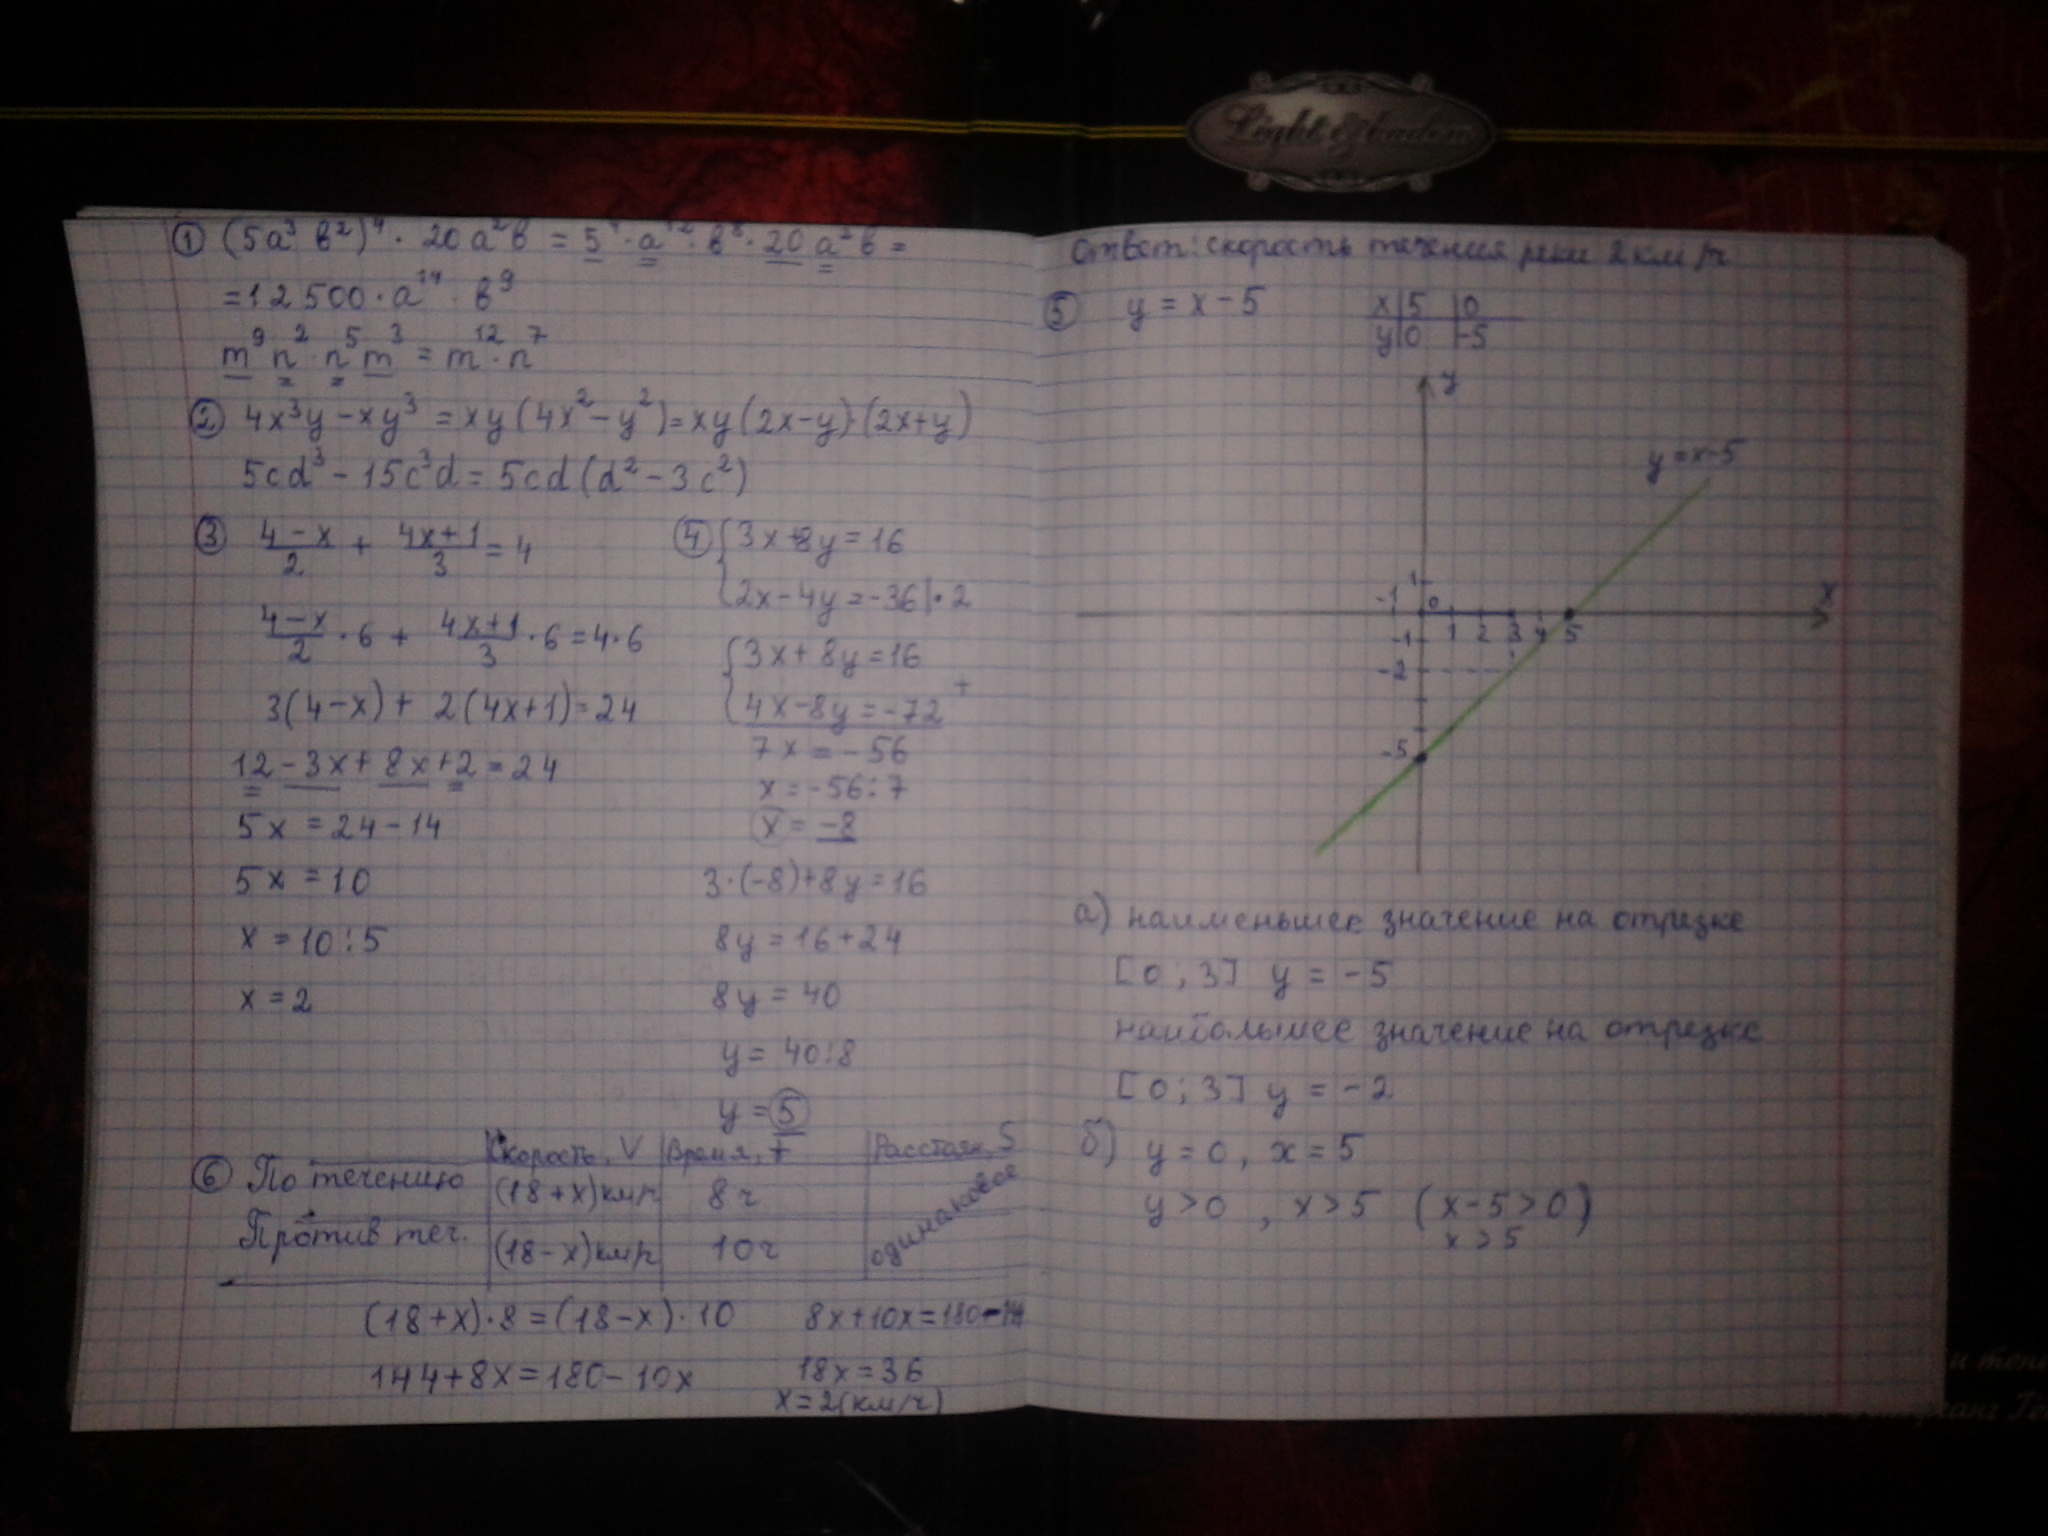 Light & Shadow
① (5a³ b²)⁴ · 20 a²b = 5⁴ · a¹² · b⁸ · 20 a² b =
= 12 500 · a¹⁴ · b⁹
m⁹ n² · n⁵ m³ = m¹² · n⁷
② 4x³y − xy³ = xy(4x² − y²) = xy(2x−y)·(2x+y)
5cd³ − 15c³d = 5cd(d² − 3c²)
③ (4−x)/2 + (4x+1)/3 = 4
(4−x)/2 · 6 + (4x+1)/3 · 6 = 4·6
3(4−x) + 2(4x+1) = 24
12 − 3x + 8x + 2 = 24
5x = 24 − 14
5x = 10
x = 10 : 5
x = 2
④ { 3x+8y = 16
2x − 4y = −36 | · 2
{ 3x + 8y = 16
4x − 8y = −72 +
7x = −56
x = −56 : 7
x = −8
3·(−8)+8y = 16
8y = 16 + 24
8y = 40
y = 40 : 8
y = 5
⑥ Скорость, V Время, t Расстоян, S
По течению (18+x)км/ч 8 ч одинаковое
Против теч. (18−x)км/ч 10 ч
(18+x)·8 = (18−x)·10
144+8x = 180−10x
8x+10x = 180−144
18x = 36
x = 2(км/ч)
Ответ: скорость течения реки 2 км/ч
⑤ y = x − 5
x | 5 | 0
y | 0 | −5
y
y = x−5
1
-1 0 1 2 3 4 5 x
-1
-2
-5
а) наименьшее значение на отрезке
[0 ; 3] y = −5
наибольшее значение на отрезке
[0 ; 3] y = −2
б) y = 0, x = 5
y > 0 , x > 5 (x−5 > 0)
x > 5